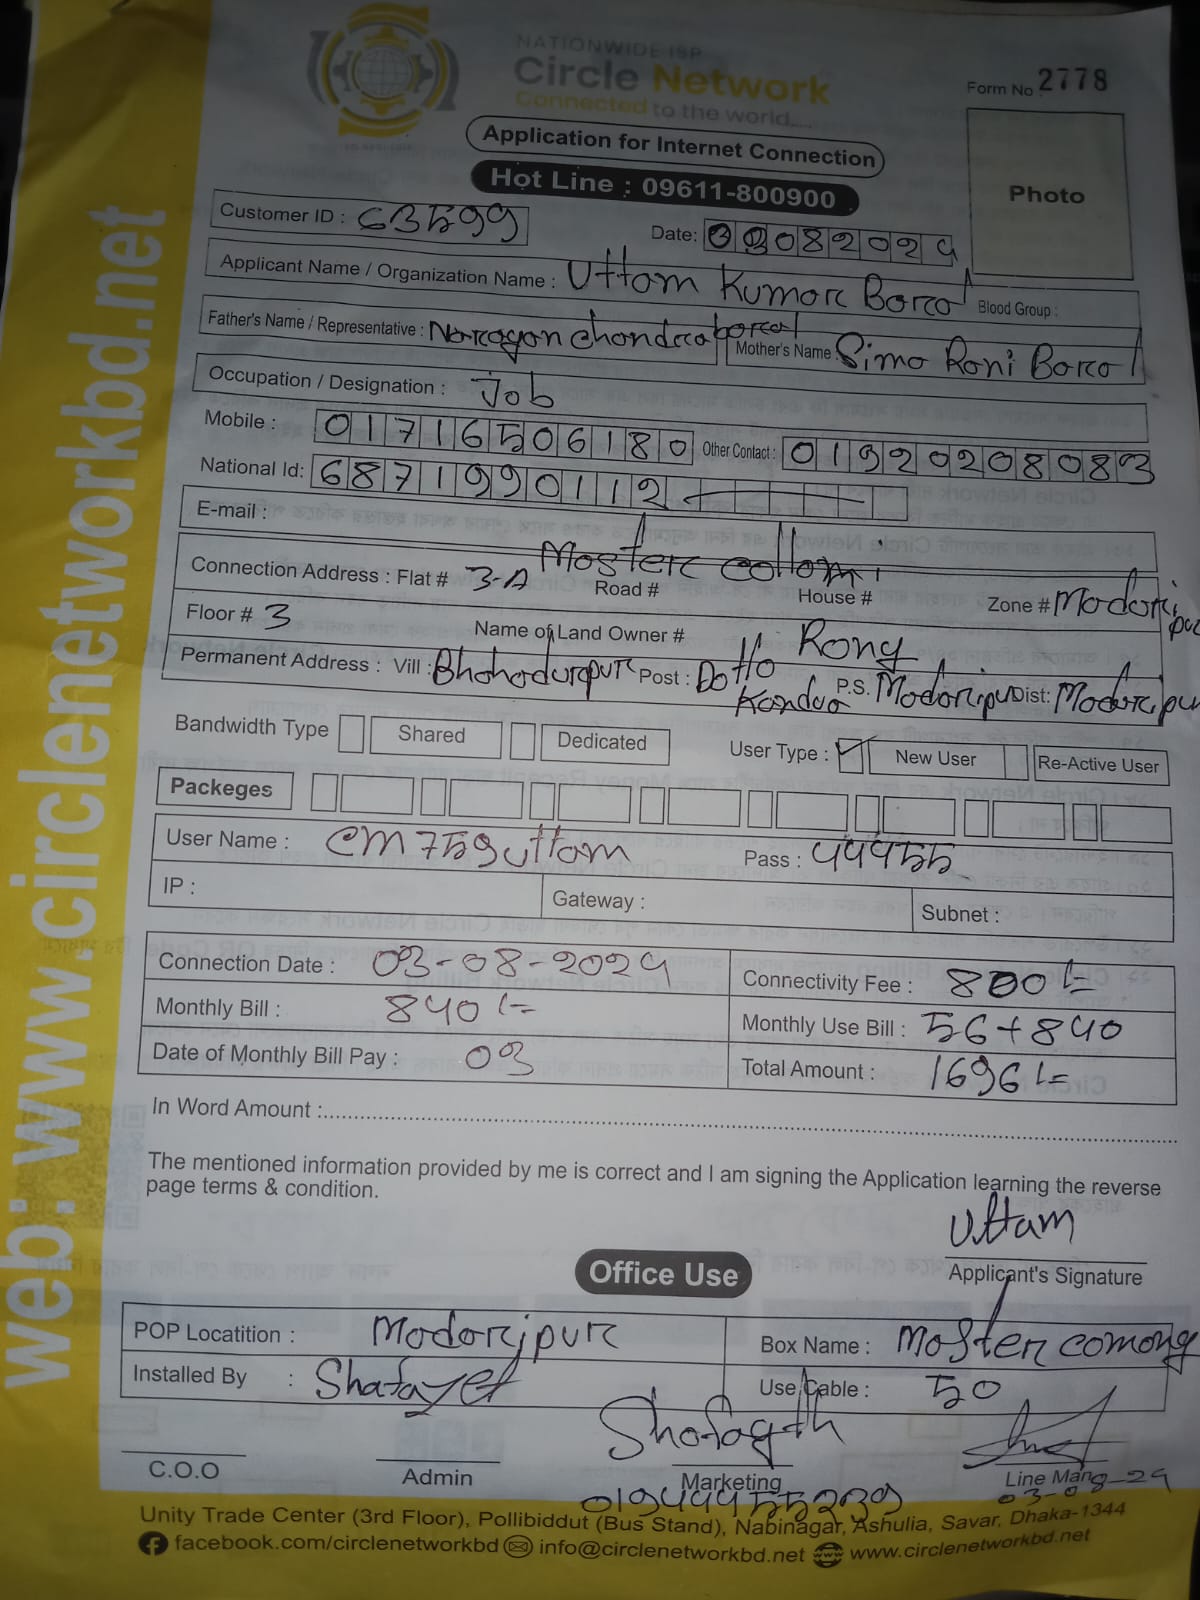 NATIONWIDE ISP
Circle Network
Connected to the world.....
Form No 2778
Application for Internet Connection
Hot Line : 09611-800900
Photo
Customer ID : 63599
Date: 03082024
Applicant Name / Organization Name : Uttam Kumar Boral
Blood Group :
Father's Name / Representative : Narayan Chandra boral
Mother's Name : Simo Rani Boral
Occupation / Designation : Job
Mobile : 01716506180 Other Contact : 01920208083
National Id: 6871990112
E-mail :
Connection Address : Flat # 3-A Road # House # Zone # Madaripur
Master
Floor # 3 Name of Land Owner # Rony
Permanent Address : Vill : Bhohodurpur Post : Dotto Kendua P.S. Madaripur Dist: Madaripur
Bandwidth Type Shared Dedicated User Type : New User Re-Active User
Packeges
User Name : CM759uttam Pass : 444555
IP : Gateway : Subnet :
Connection Date : 03-08-2024 Connectivity Fee : 800/=
Monthly Bill : 840/= Monthly Use Bill : 56+840
Date of Monthly Bill Pay : 03 Total Amount : 1696/=
In Word Amount :
The mentioned information provided by me is correct and I am signing the Application learning the reverse
page terms & condition.
Uttam
Applicant's Signature
Office Use
POP Locatition : Madaripur Box Name : Master
Installed By : Shafayet Use Cable : 50
C.O.O Admin Marketing Line Man
03-08-24
Unity Trade Center (3rd Floor), Pollibiddut (Bus Stand), Nabinagar, Ashulia, Savar, Dhaka-1344
facebook.com/circlenetworkbd info@circlenetworkbd.net www.circlenetworkbd.net
web: www.circlenetworkbd.net